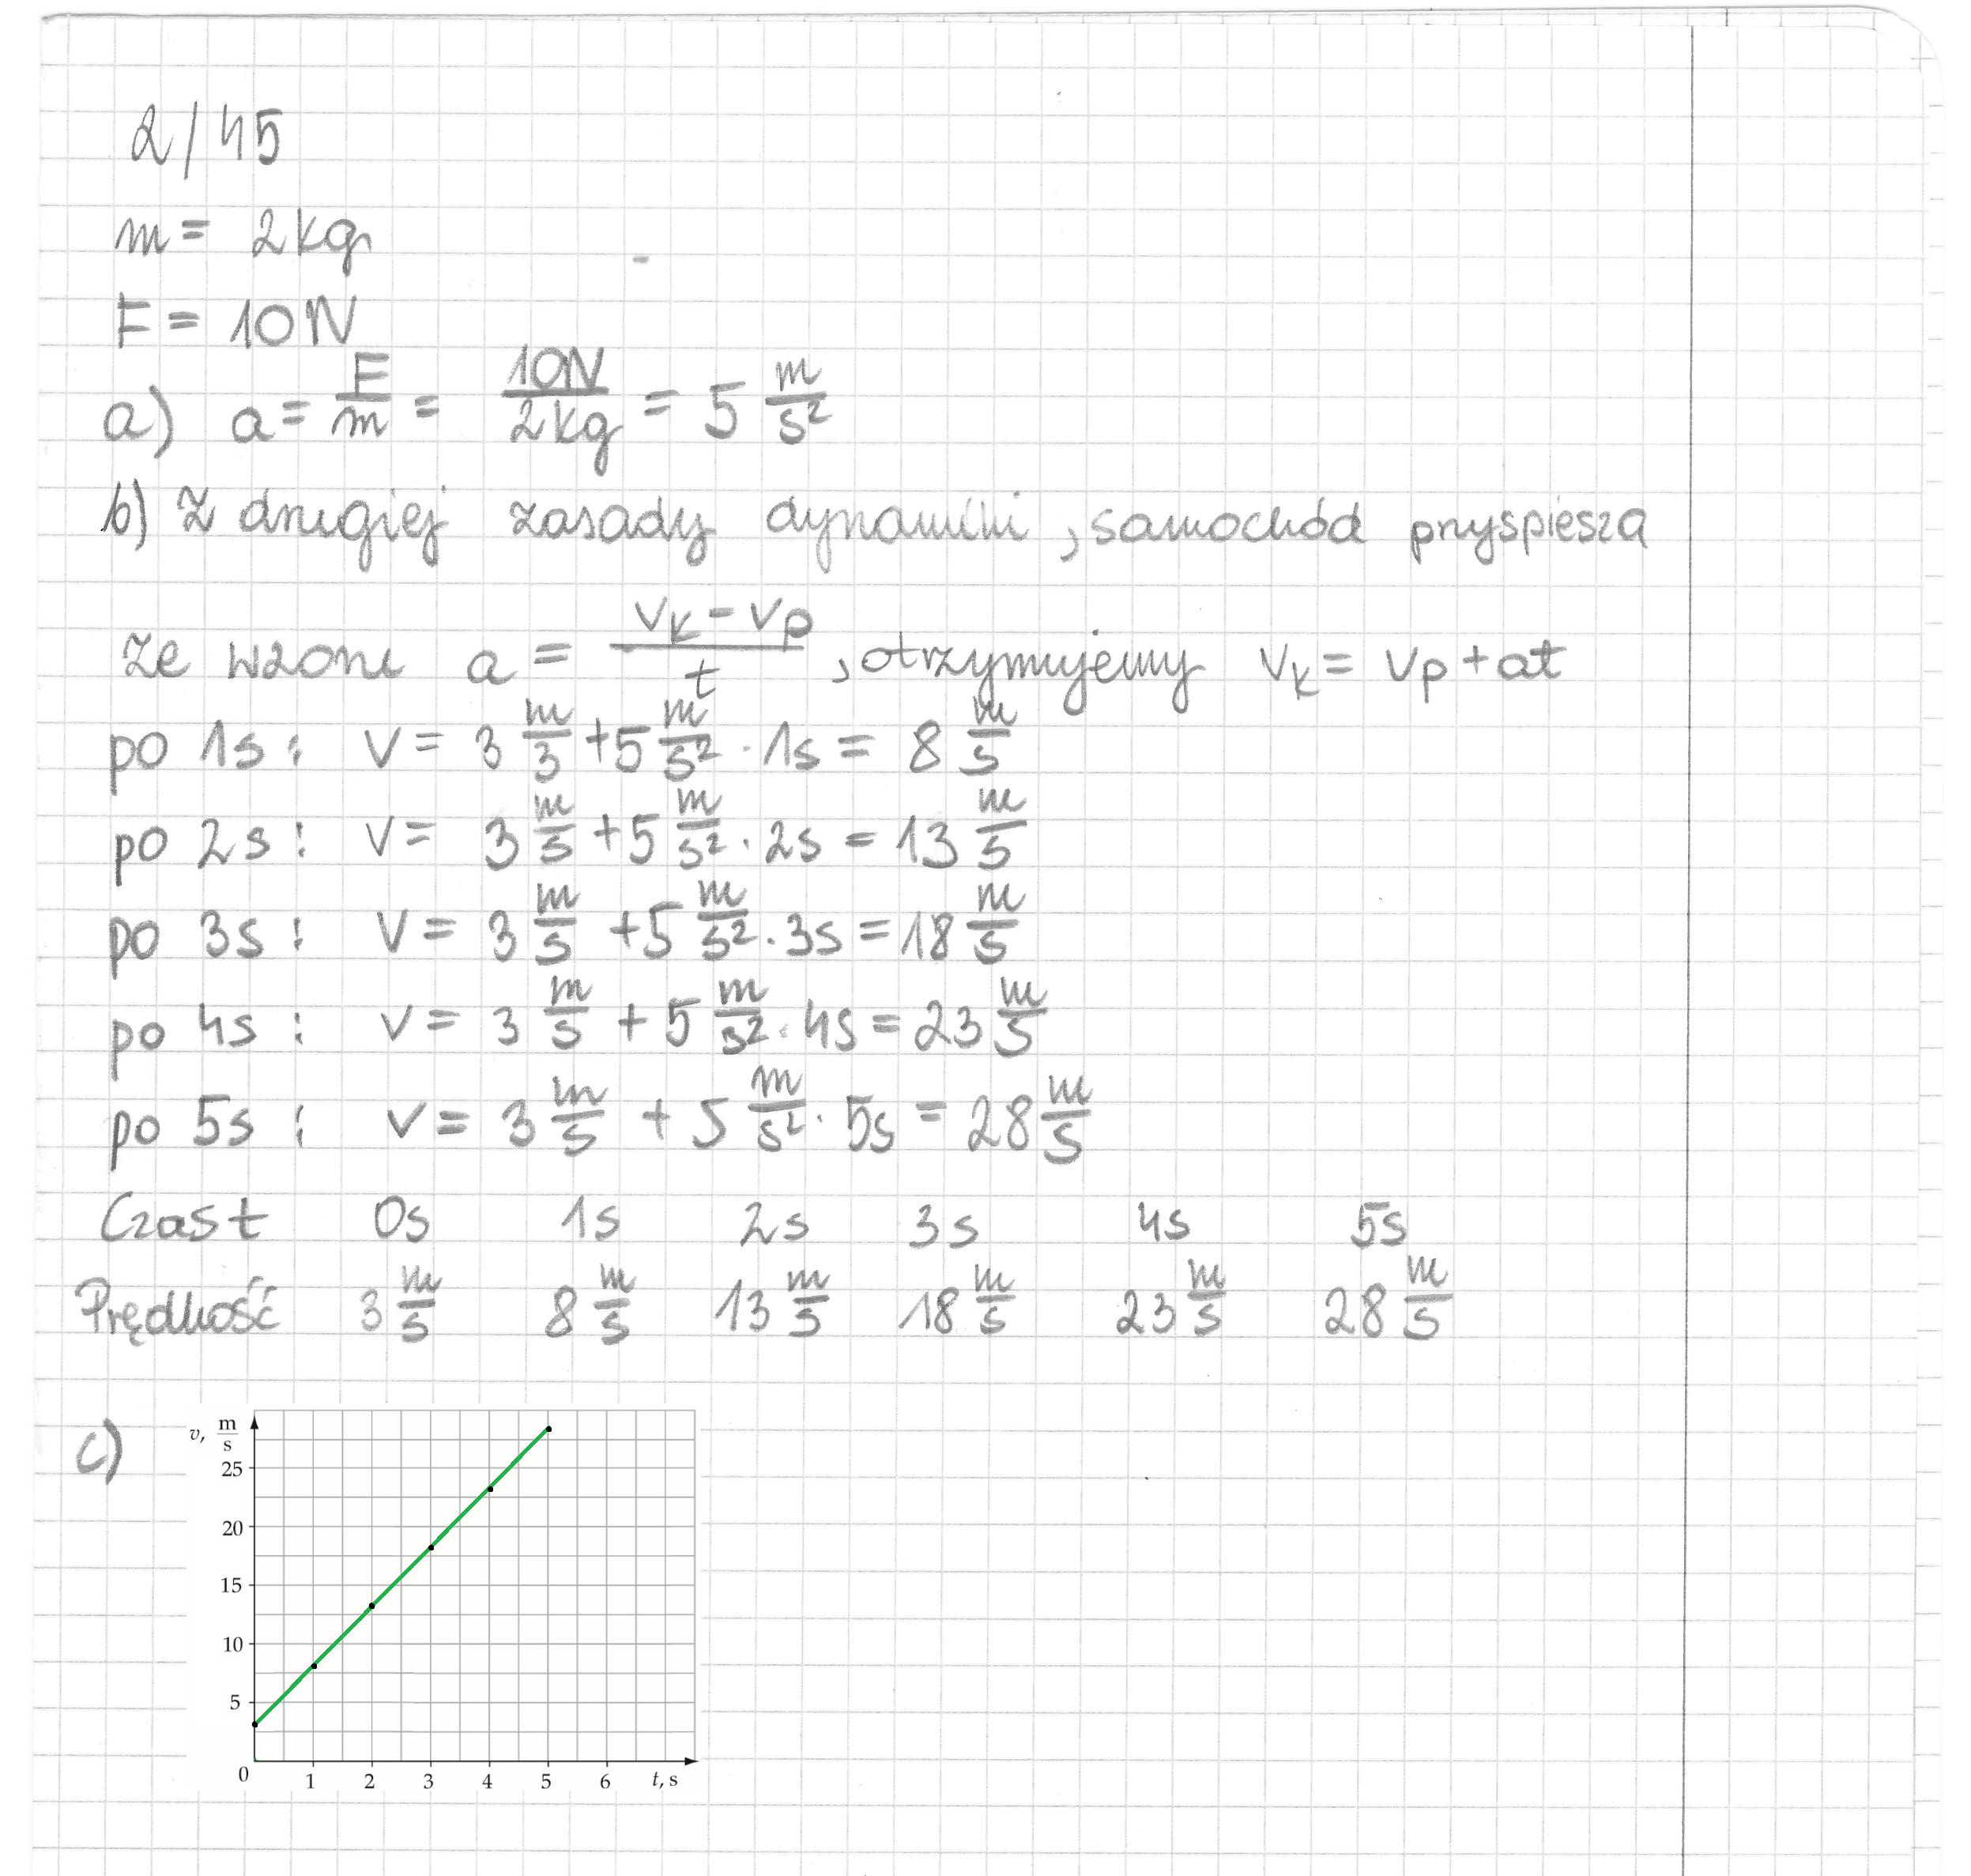 2/45
m = 2kg
F = 10N
a) a = F/m = 10N/2kg = 5 m/s²
b) Z drugiej zasady dynamiki, samochód przyspiesza
Ze wzoru a = vk - vp / t, otrzymujemy vk = vp + at
po 1s: v = 3 m/3 + 5 m/s² · 1s = 8 m/s
po 2s: v = 3 m/s + 5 m/s² · 2s = 13 m/s
po 3s: v = 3 m/s + 5 m/s² · 3s = 18 m/s
po 4s: v = 3 m/s + 5 m/s² · 4s = 23 m/s
po 5s: v = 3 m/s + 5 m/s² · 5s = 28 m/s
Czas t 0s 1s 2s 3s 4s 5s
Prędkość 3 m/s 8 m/s 13 m/s 18 m/s 23 m/s 28 m/s
c)
v, m/s
25
20
15
10
5
0 1 2 3 4 5 6 t, s